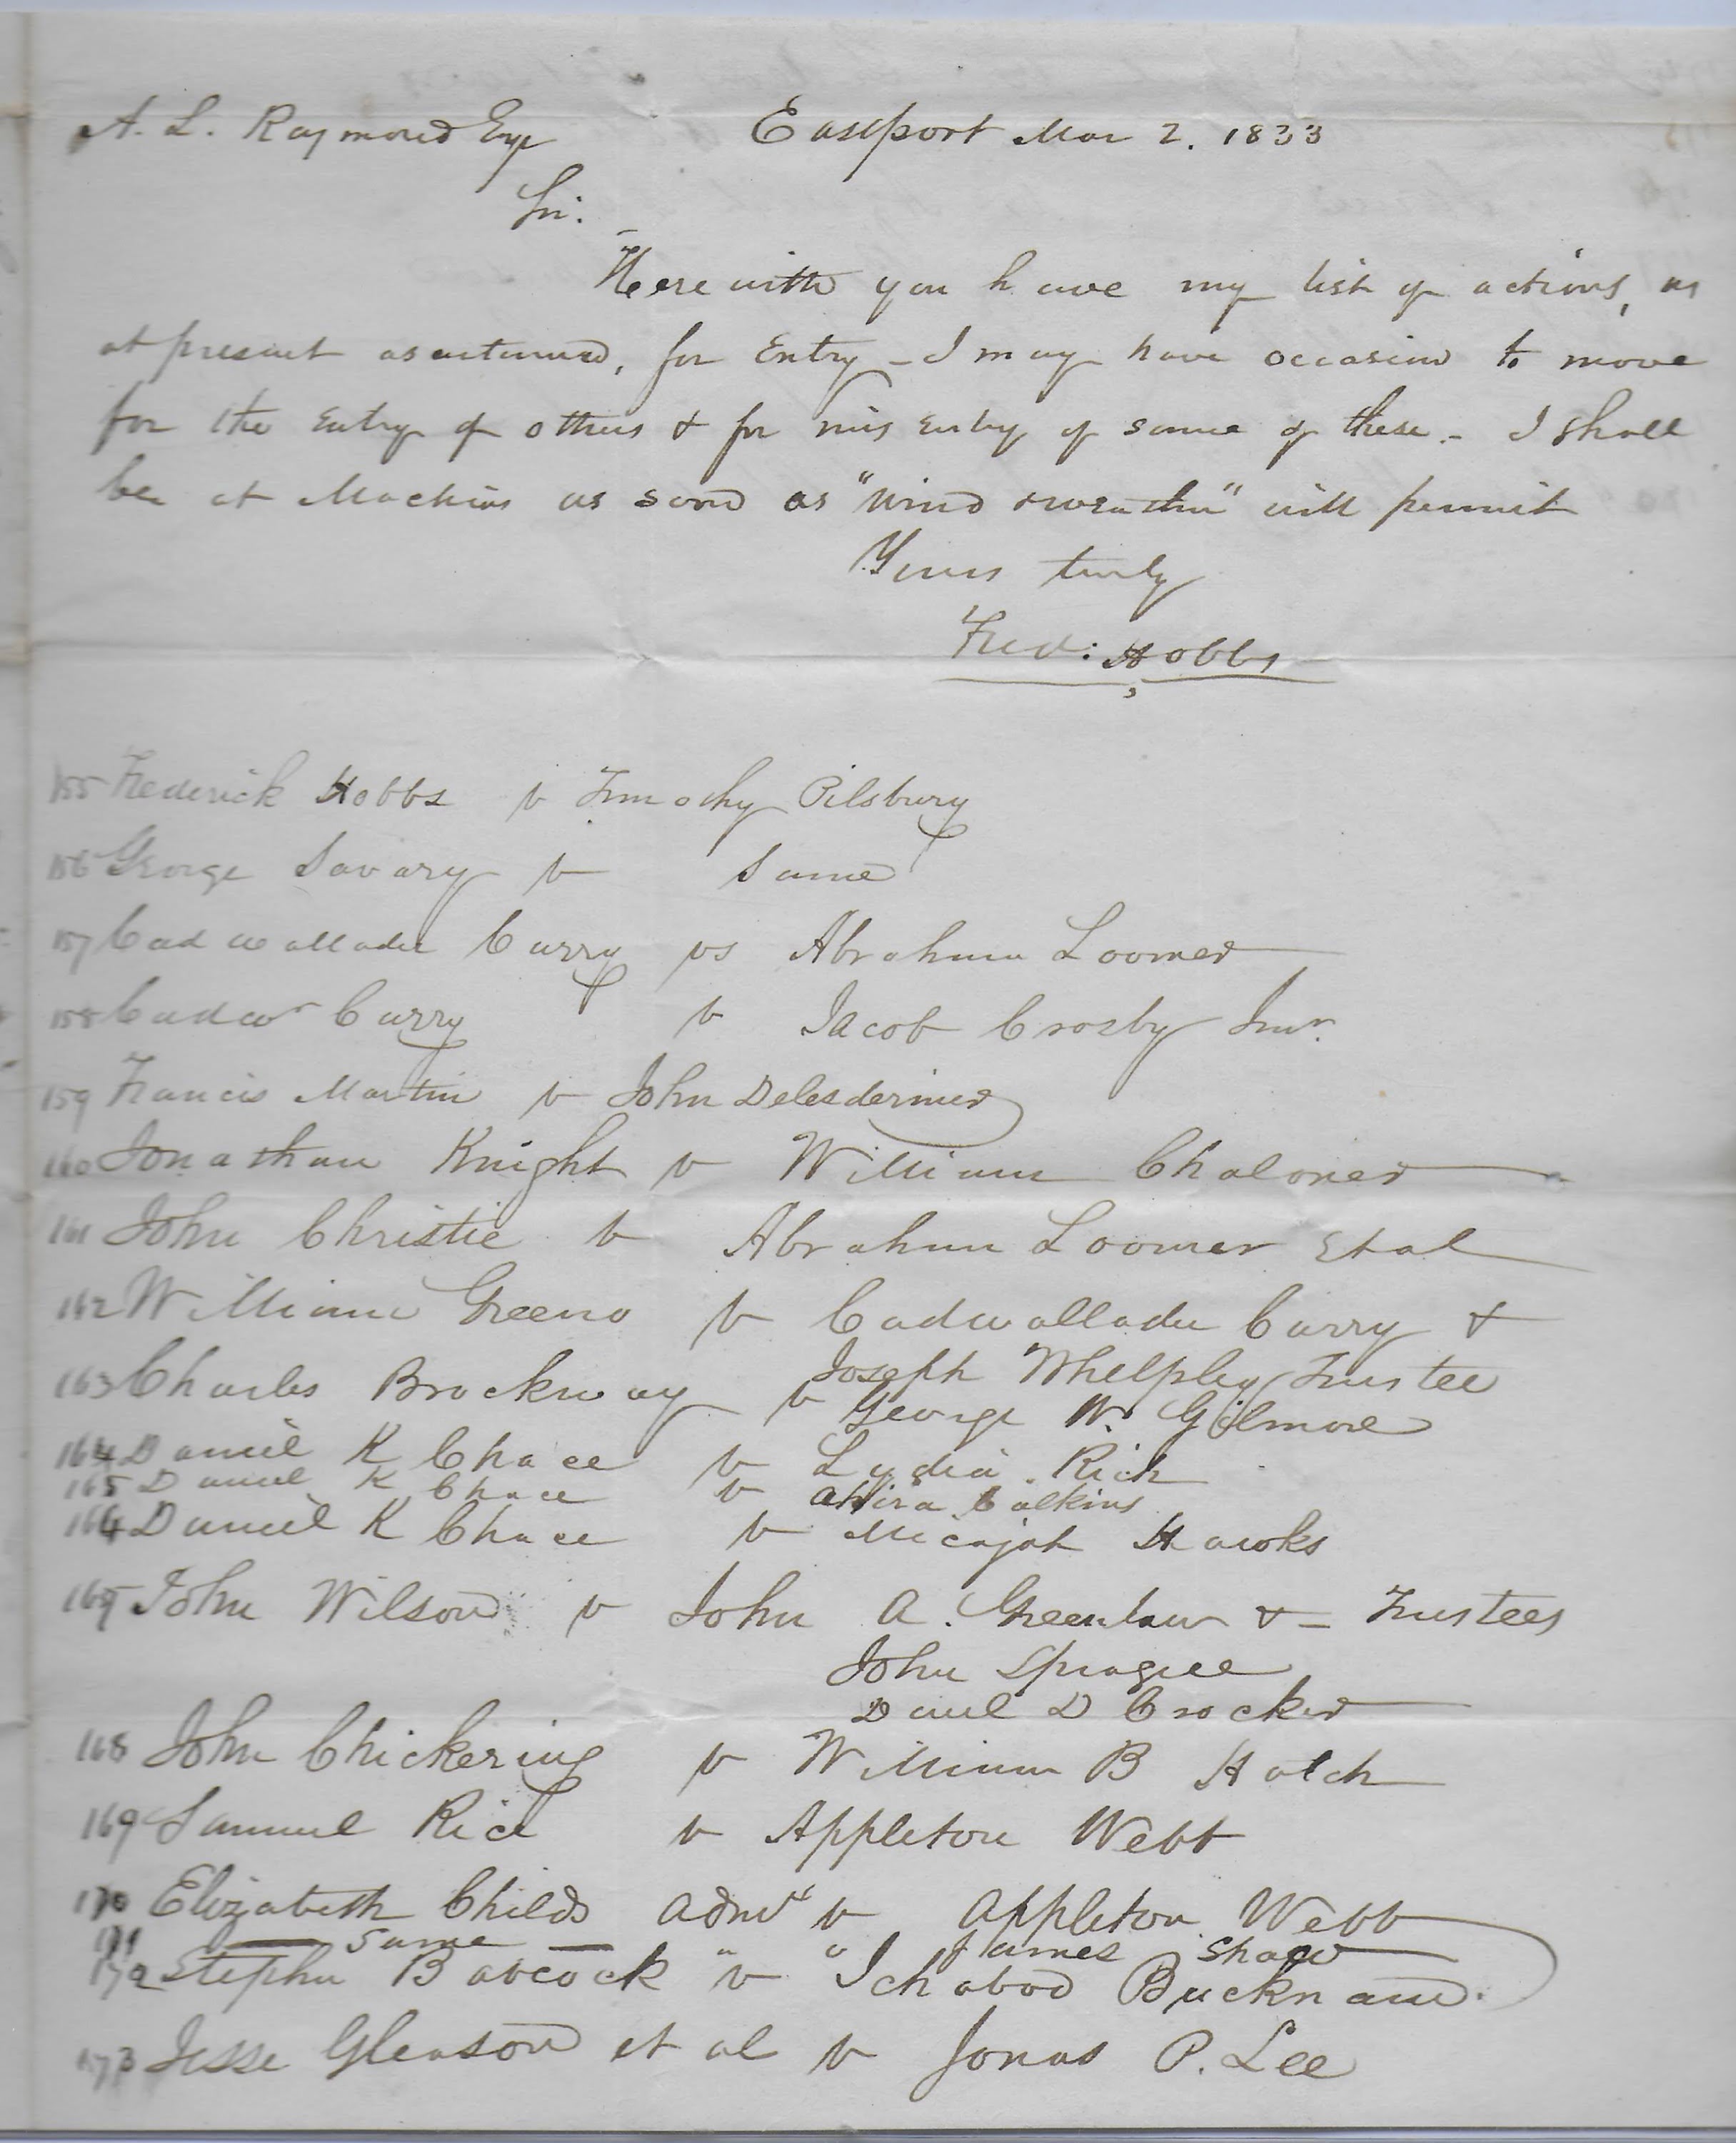 A. L. Raymond Esqr
Eastport Mar 2. 1833
Sir.
Herewith you have my list of actions, as
at present ascertained, for Entry - I may have occasion to move
for the Entry of others & for mis Entry of some of these. - I shall
be at Machias as soon as "wind & weather" will permit
Yours truly
Fred: Hobbs
155 Frederick Hobbs v Timothy Pilsbury
156 George Savary v Same
157 Cadwallader Curry vs Abraham Loomer
158 Cadwr Curry v Jacob Crosby Junr.
159 Francis Martin v John Delesdernier
160 Jonathan Knight v William Chaloner
161 John Christie v Abraham Loomer Et al
162 William Greeno v Cadwallader Curry &
Joseph Whelpley Trustee
163 Charles Brockway v George W. Gilmore
164 Daniel K Chace v Lydia Rich
165 Daniel K Chace v Calkins
166 Daniel K Chace v Micajah Hawks
167 John Wilson v John A. Greenlaw & - Trustees
John Sprague
Danl D Crocker
168 John Chickering v William B Hatch
169 Samuel Rice v Appleton Webb
170 Elizabeth Childs Admx v Appleton Webb
171 — Same — " " James Shaw
172 Stephen Babcock v Ichabod Bucknam.
173 Jesse Gleason et al v Jonas P. Lee